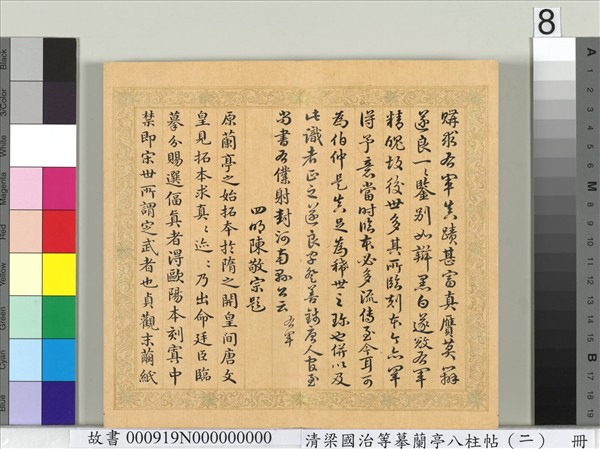 購求右軍真蹟甚富真贋莫辯
遂良一〻鑒別如辯黑白遂啟右軍
精魄故後世多其所臨刻本今亦罕
得予意當時臨本必多流傳至今耳可
為伯仲是真足為稀世之珍也併以及
此識者正之遂良字登善錢唐人官至
尚書右僕射封河南縣公云
右軍
四明陳敬宗題
原蘭亭之始拓本於隋之開皇間唐文
皇見拓本求真〻迹〻乃出命廷臣臨
摹分賜選偪真者得歐陽本刻寘中
禁即宋世所謂定武者也貞觀末繭紙
8
Black
3/Color
White
Magenta
Red
Yellow
Green
Cyan
Blue
A
1
2
3
4
5
6
M
8
9
10
11
12
13
14
15
B
17
18
19
故書 000919N000000000 清梁國治等摹蘭亭八柱帖（二） 冊